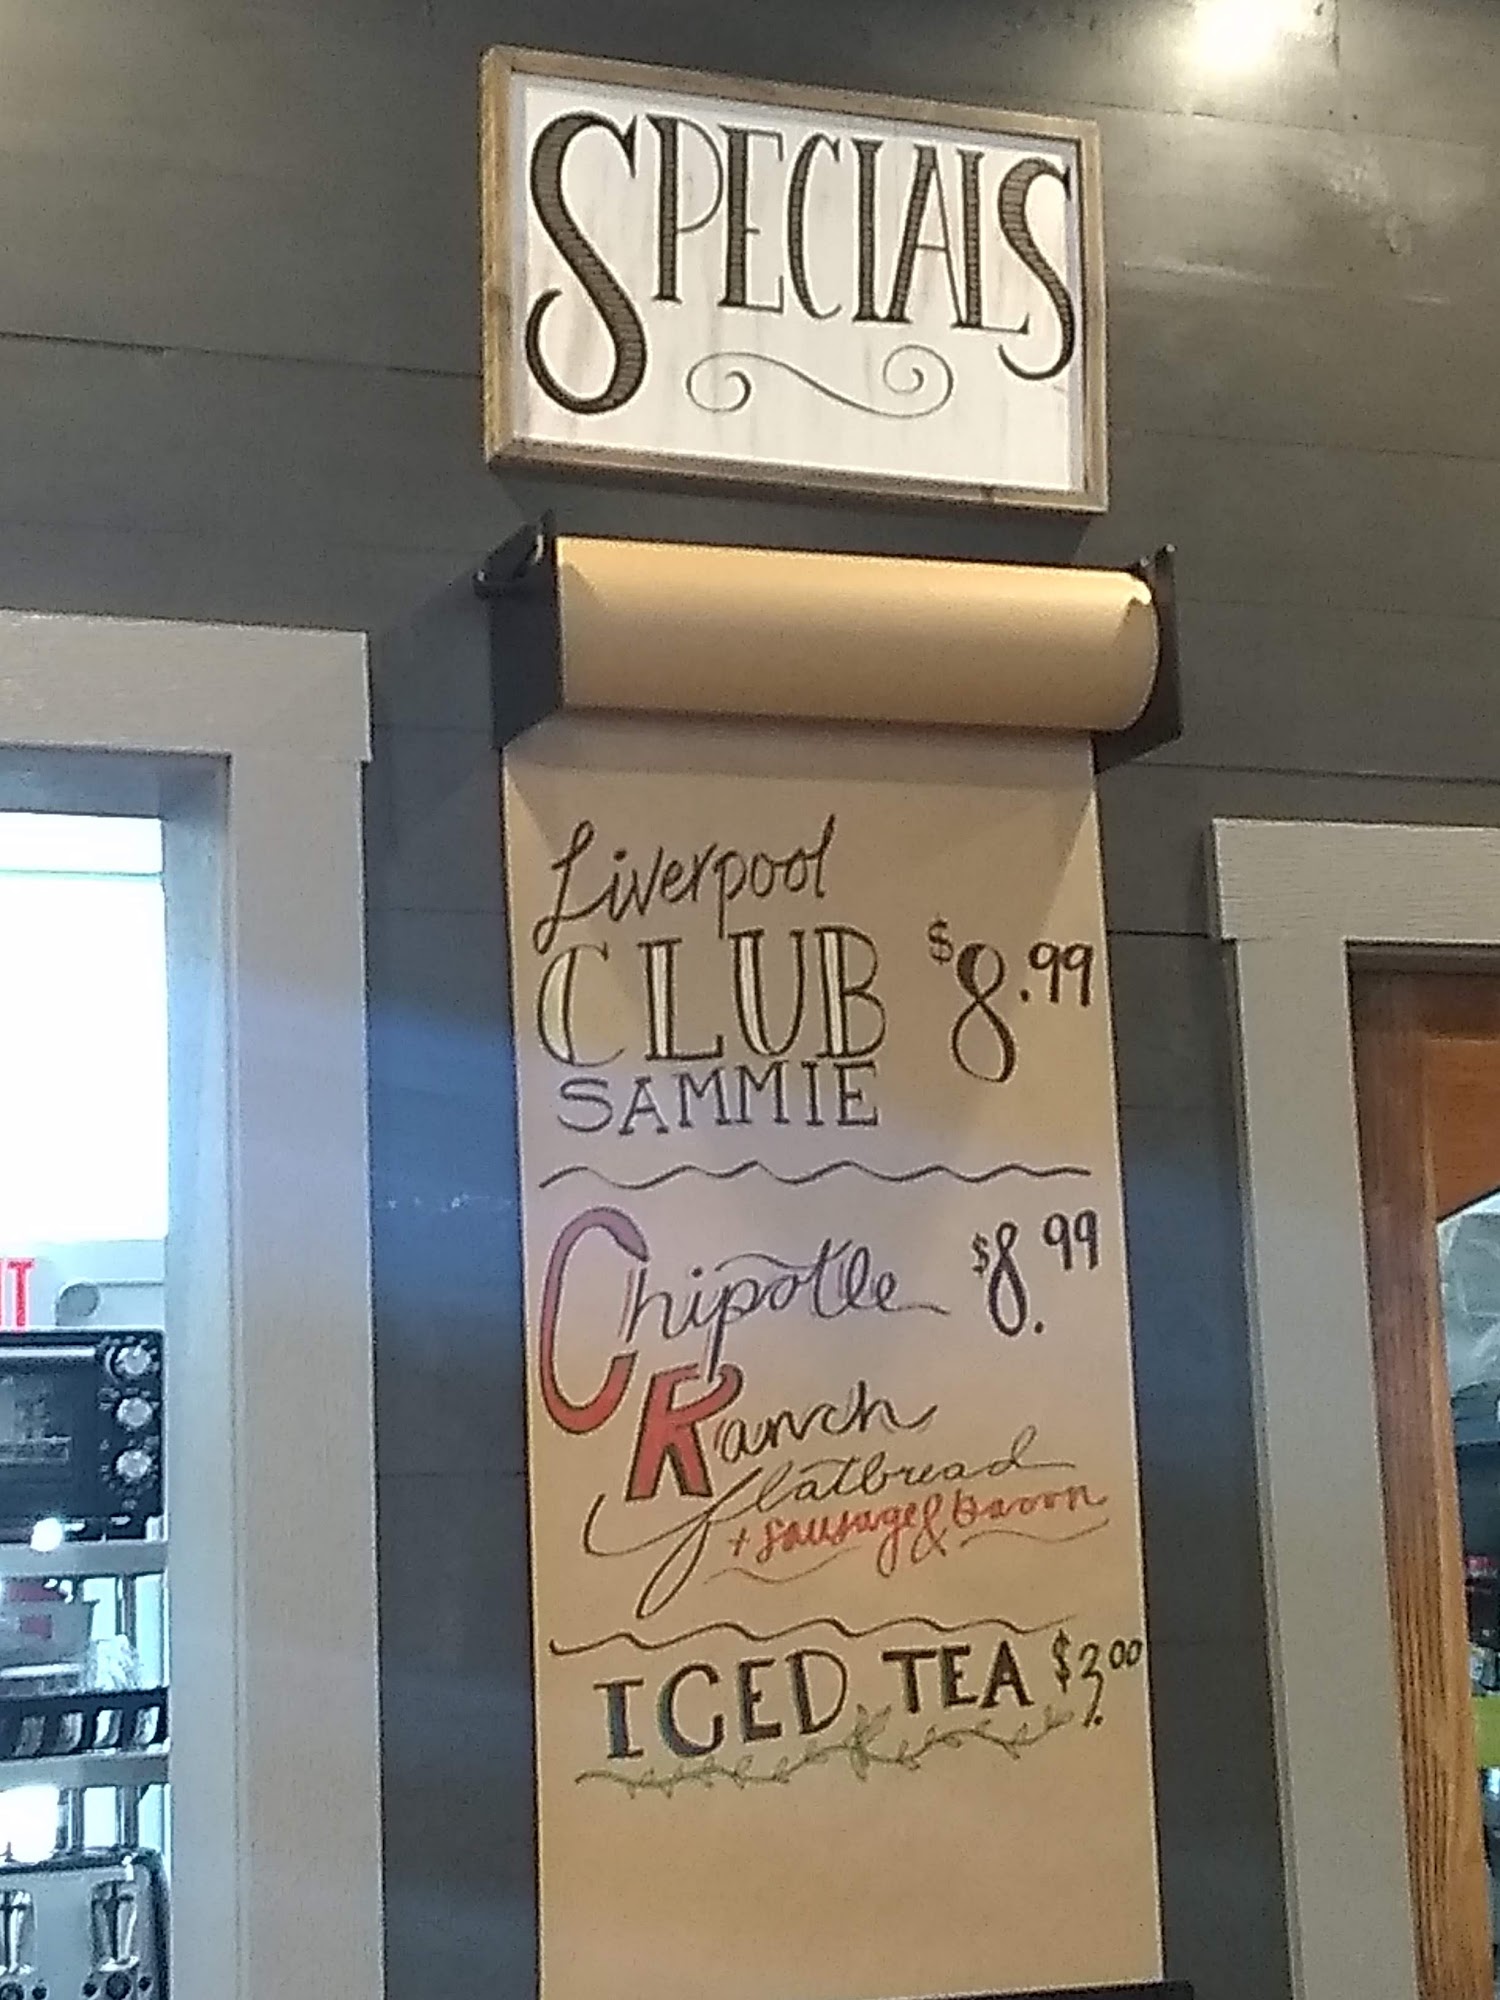 SPECIALS
Liverpool
CLUB $8.99
SAMMIE
Chipotle $8.99
Ranch
flatbread
+ sausage & bacon
ICED TEA $3.00
IT